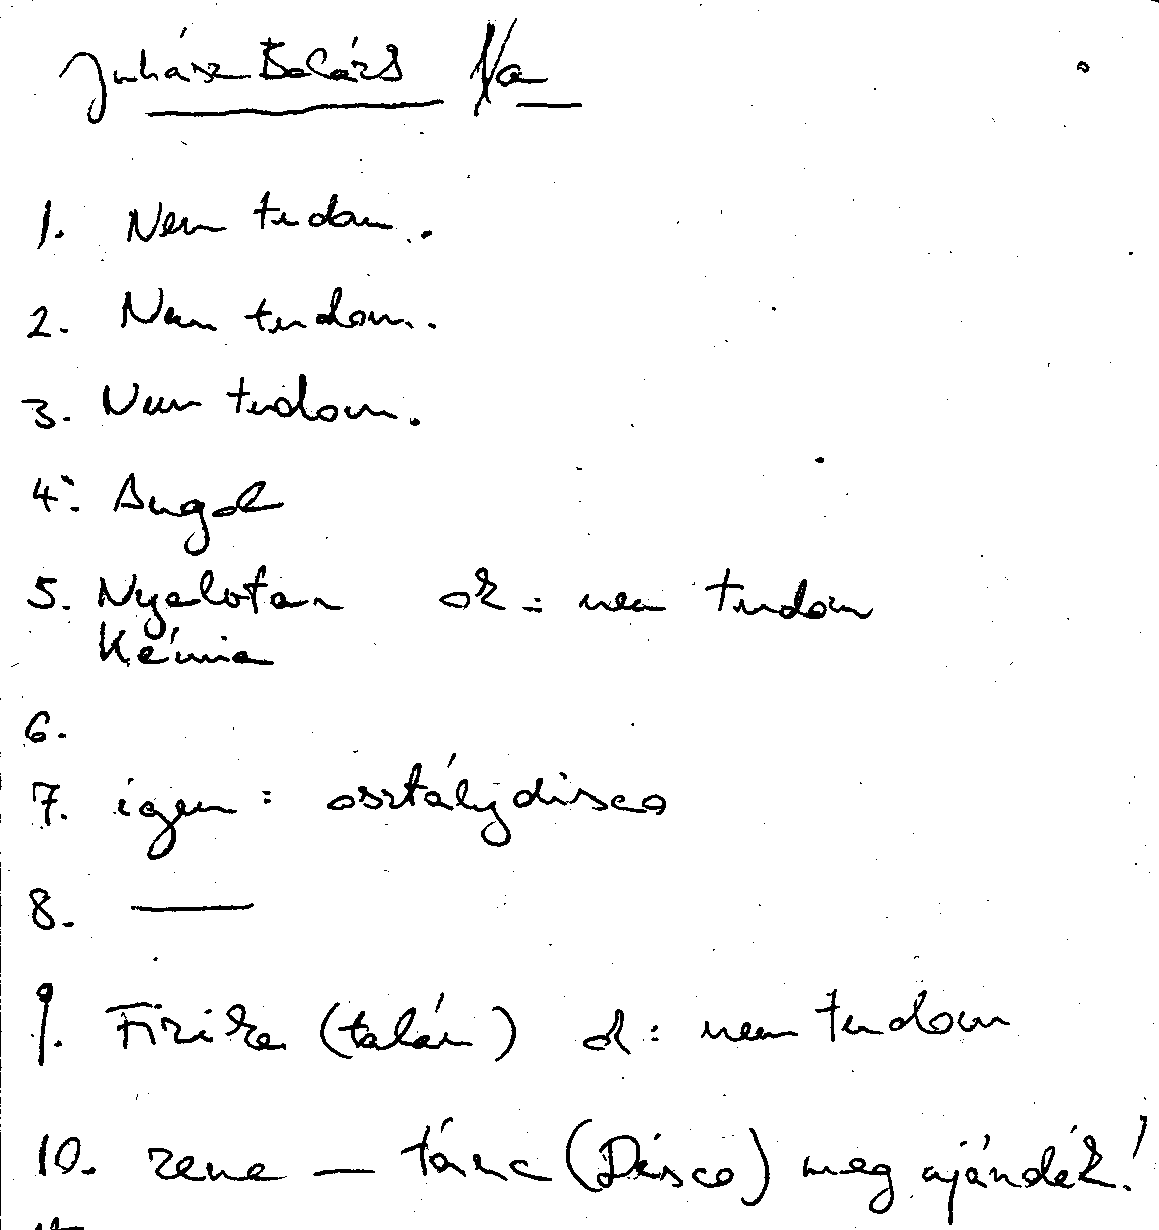 Juhász Balázs I/a
1. Nem tudom.
2. Nem tudom.
3. Nem tudom.
4. Angol
5. Nyelvtan ok: nem tudom
Kémia
6.
7. igen: osztálydisco
8. —
9. Fizika (talán) ok: nem tudom
10. zene — tánc (Disco) meg ajándék!